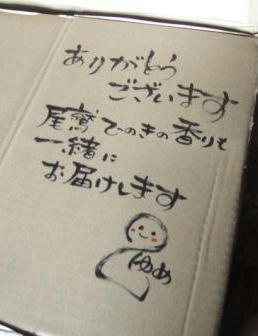 ありがとう
ございます
尾鷲ひのきの香りも
一緒に
お届けします
ゆめ